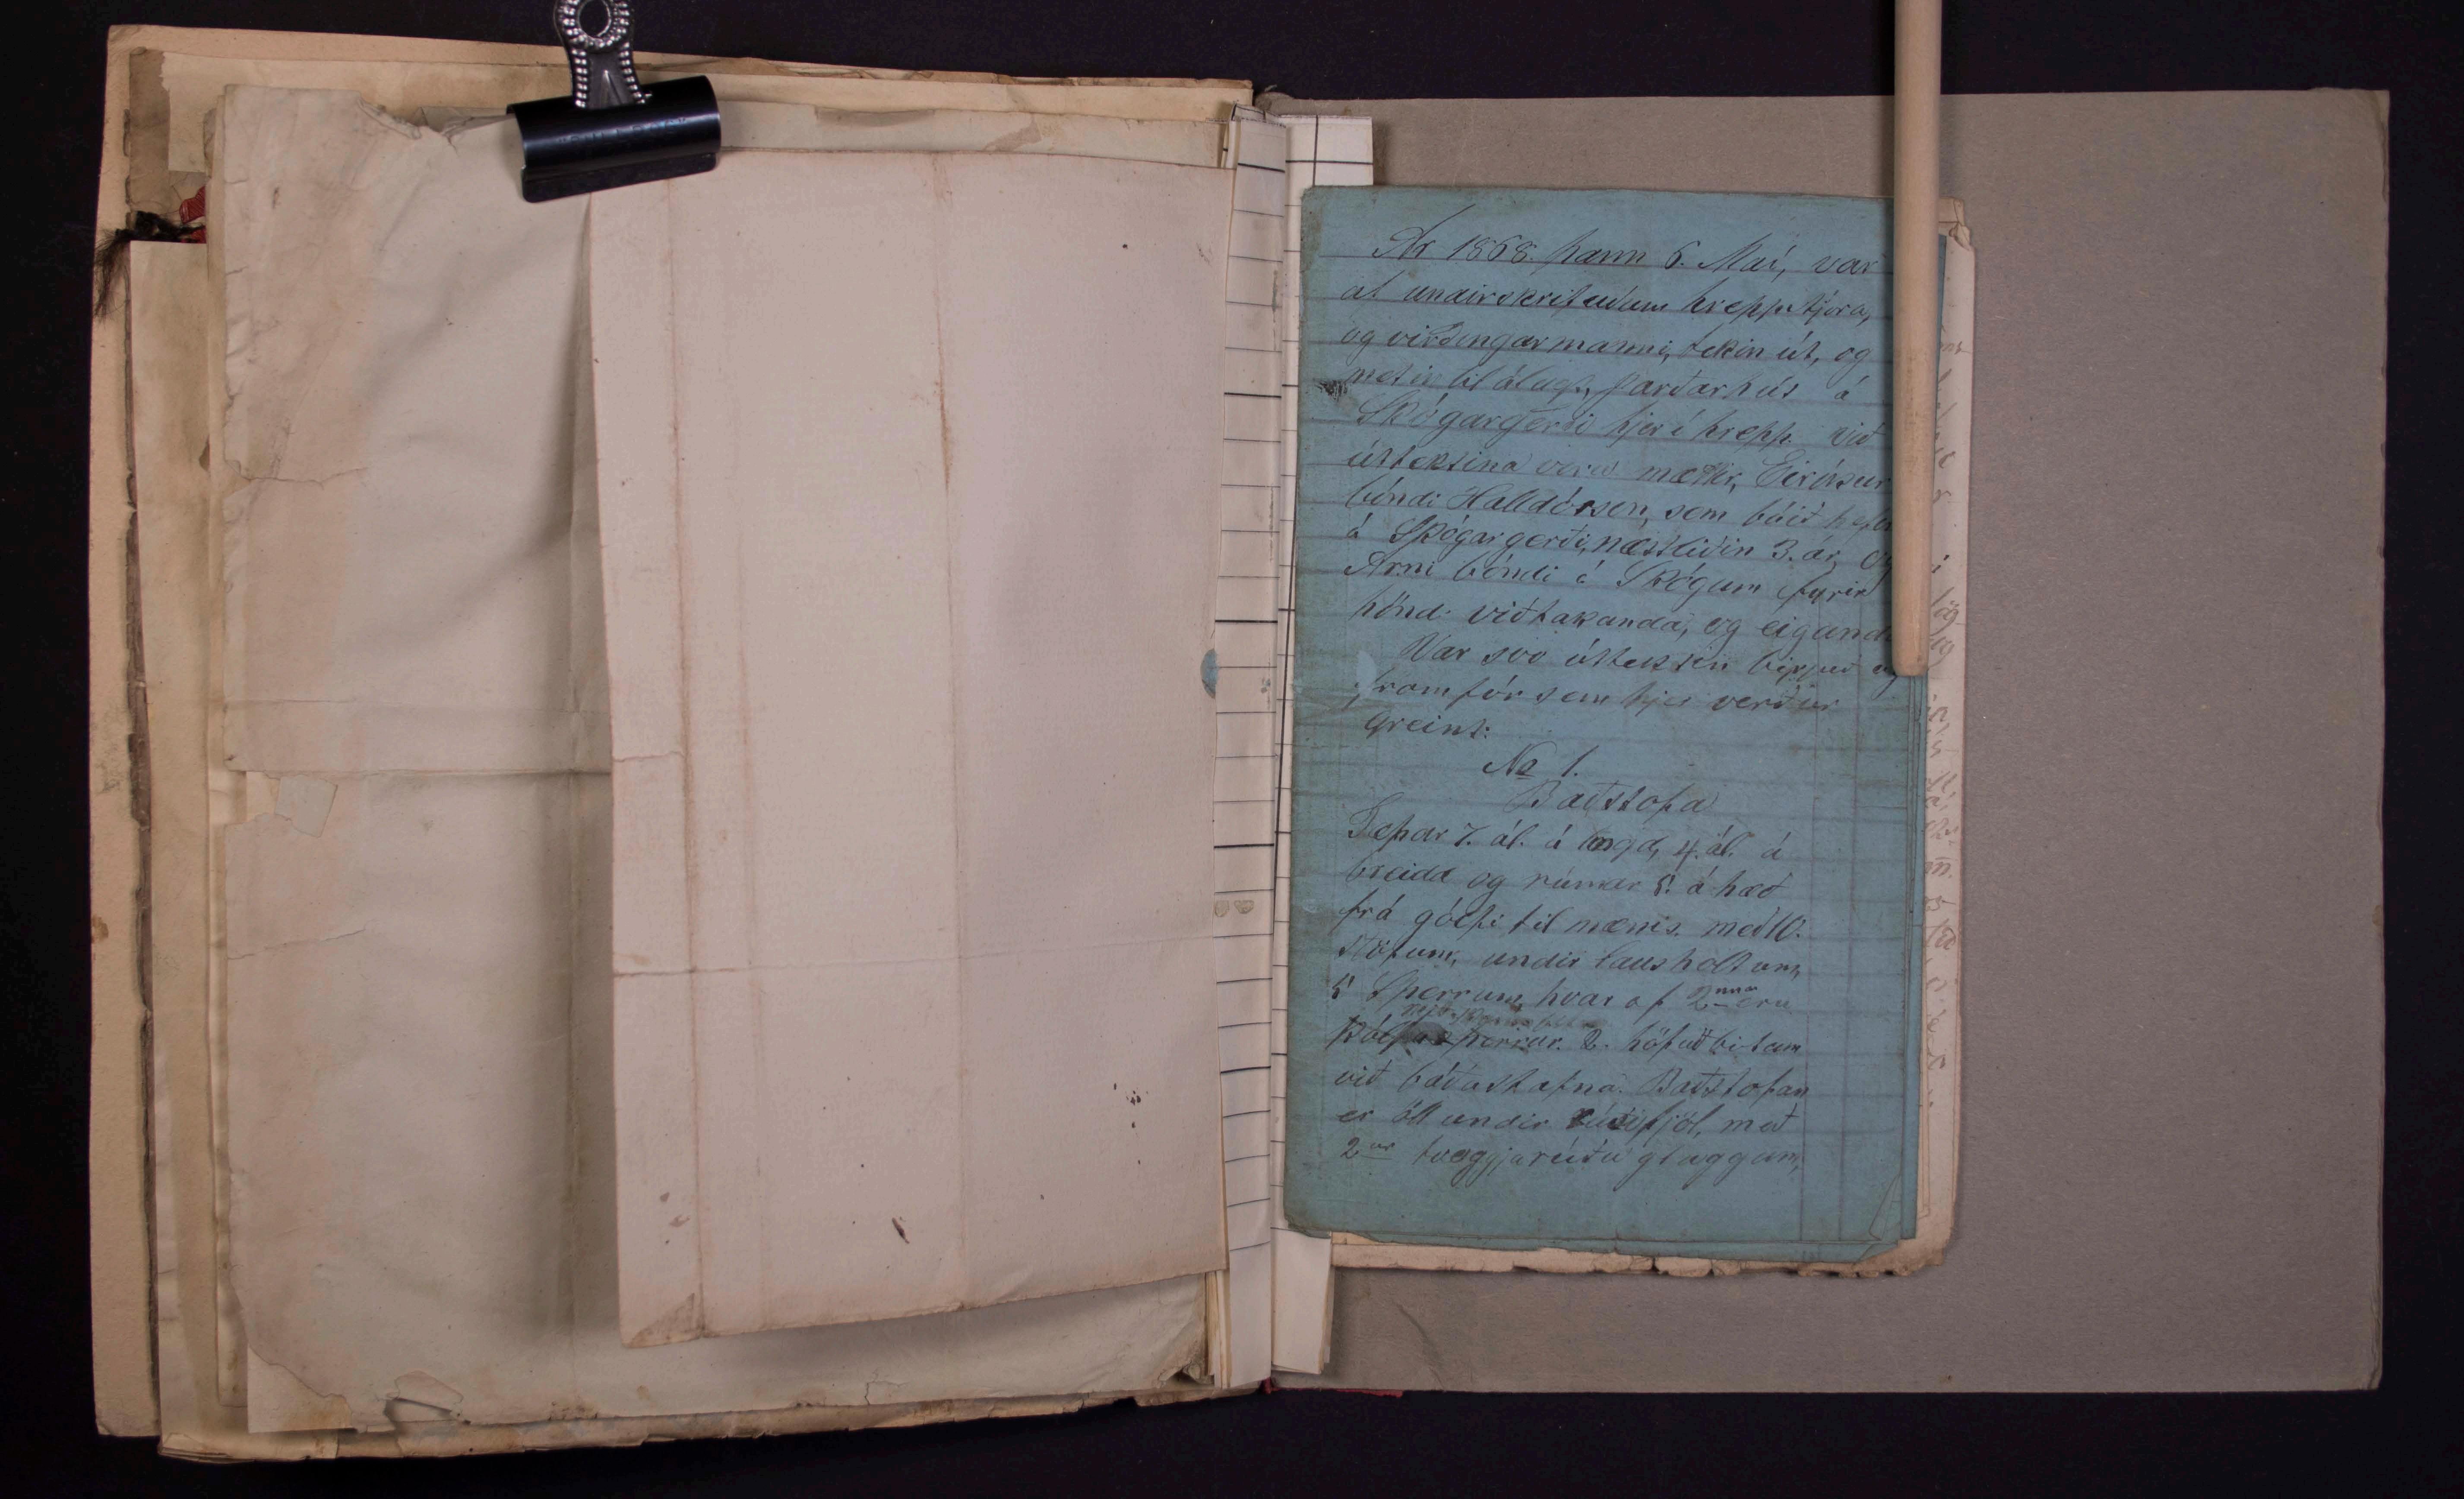 Ár 1868. þann 6. Maí, var
af undirskrifuðum hreppstjóra,
og virðingarmanni, tekin út, og
metin til álags, jarðarhús á
Skógargerði hjer í hrepp. Við
úttektina voru mættir, Eiríkur
bóndi Halldórsson, sem búið hefur
á Skógargerði, næstliðin 3. ár, og
Árni bóndi í Skógum fyrir
hönd viðtakanda, og eiganda
Var svo úttektin birjuð og
framfór sem hjer verður
greint:
No 1.
Baðstofa
7. ál. á lengd, 4. ál. á
breidd og rúmar 5. á hæð
frá gólfi til mænis. með 10.
stöfum, undir lausholtum,
5 Sperrum, hvar af 2 eru
sperrur. 2. höfuðbitum
við báða stafna. Baðstofan
er öll undir súðfjöl, með
2ur tveggjarúðu gluggum,